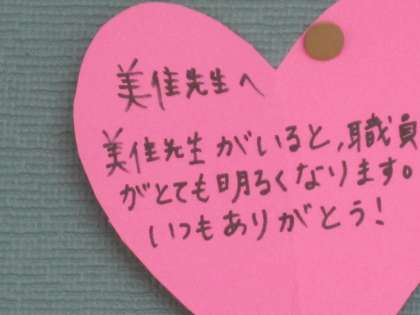 美佳先生へ
美佳先生がいると、職員
がとても明るくなります。
いつもありがとう!